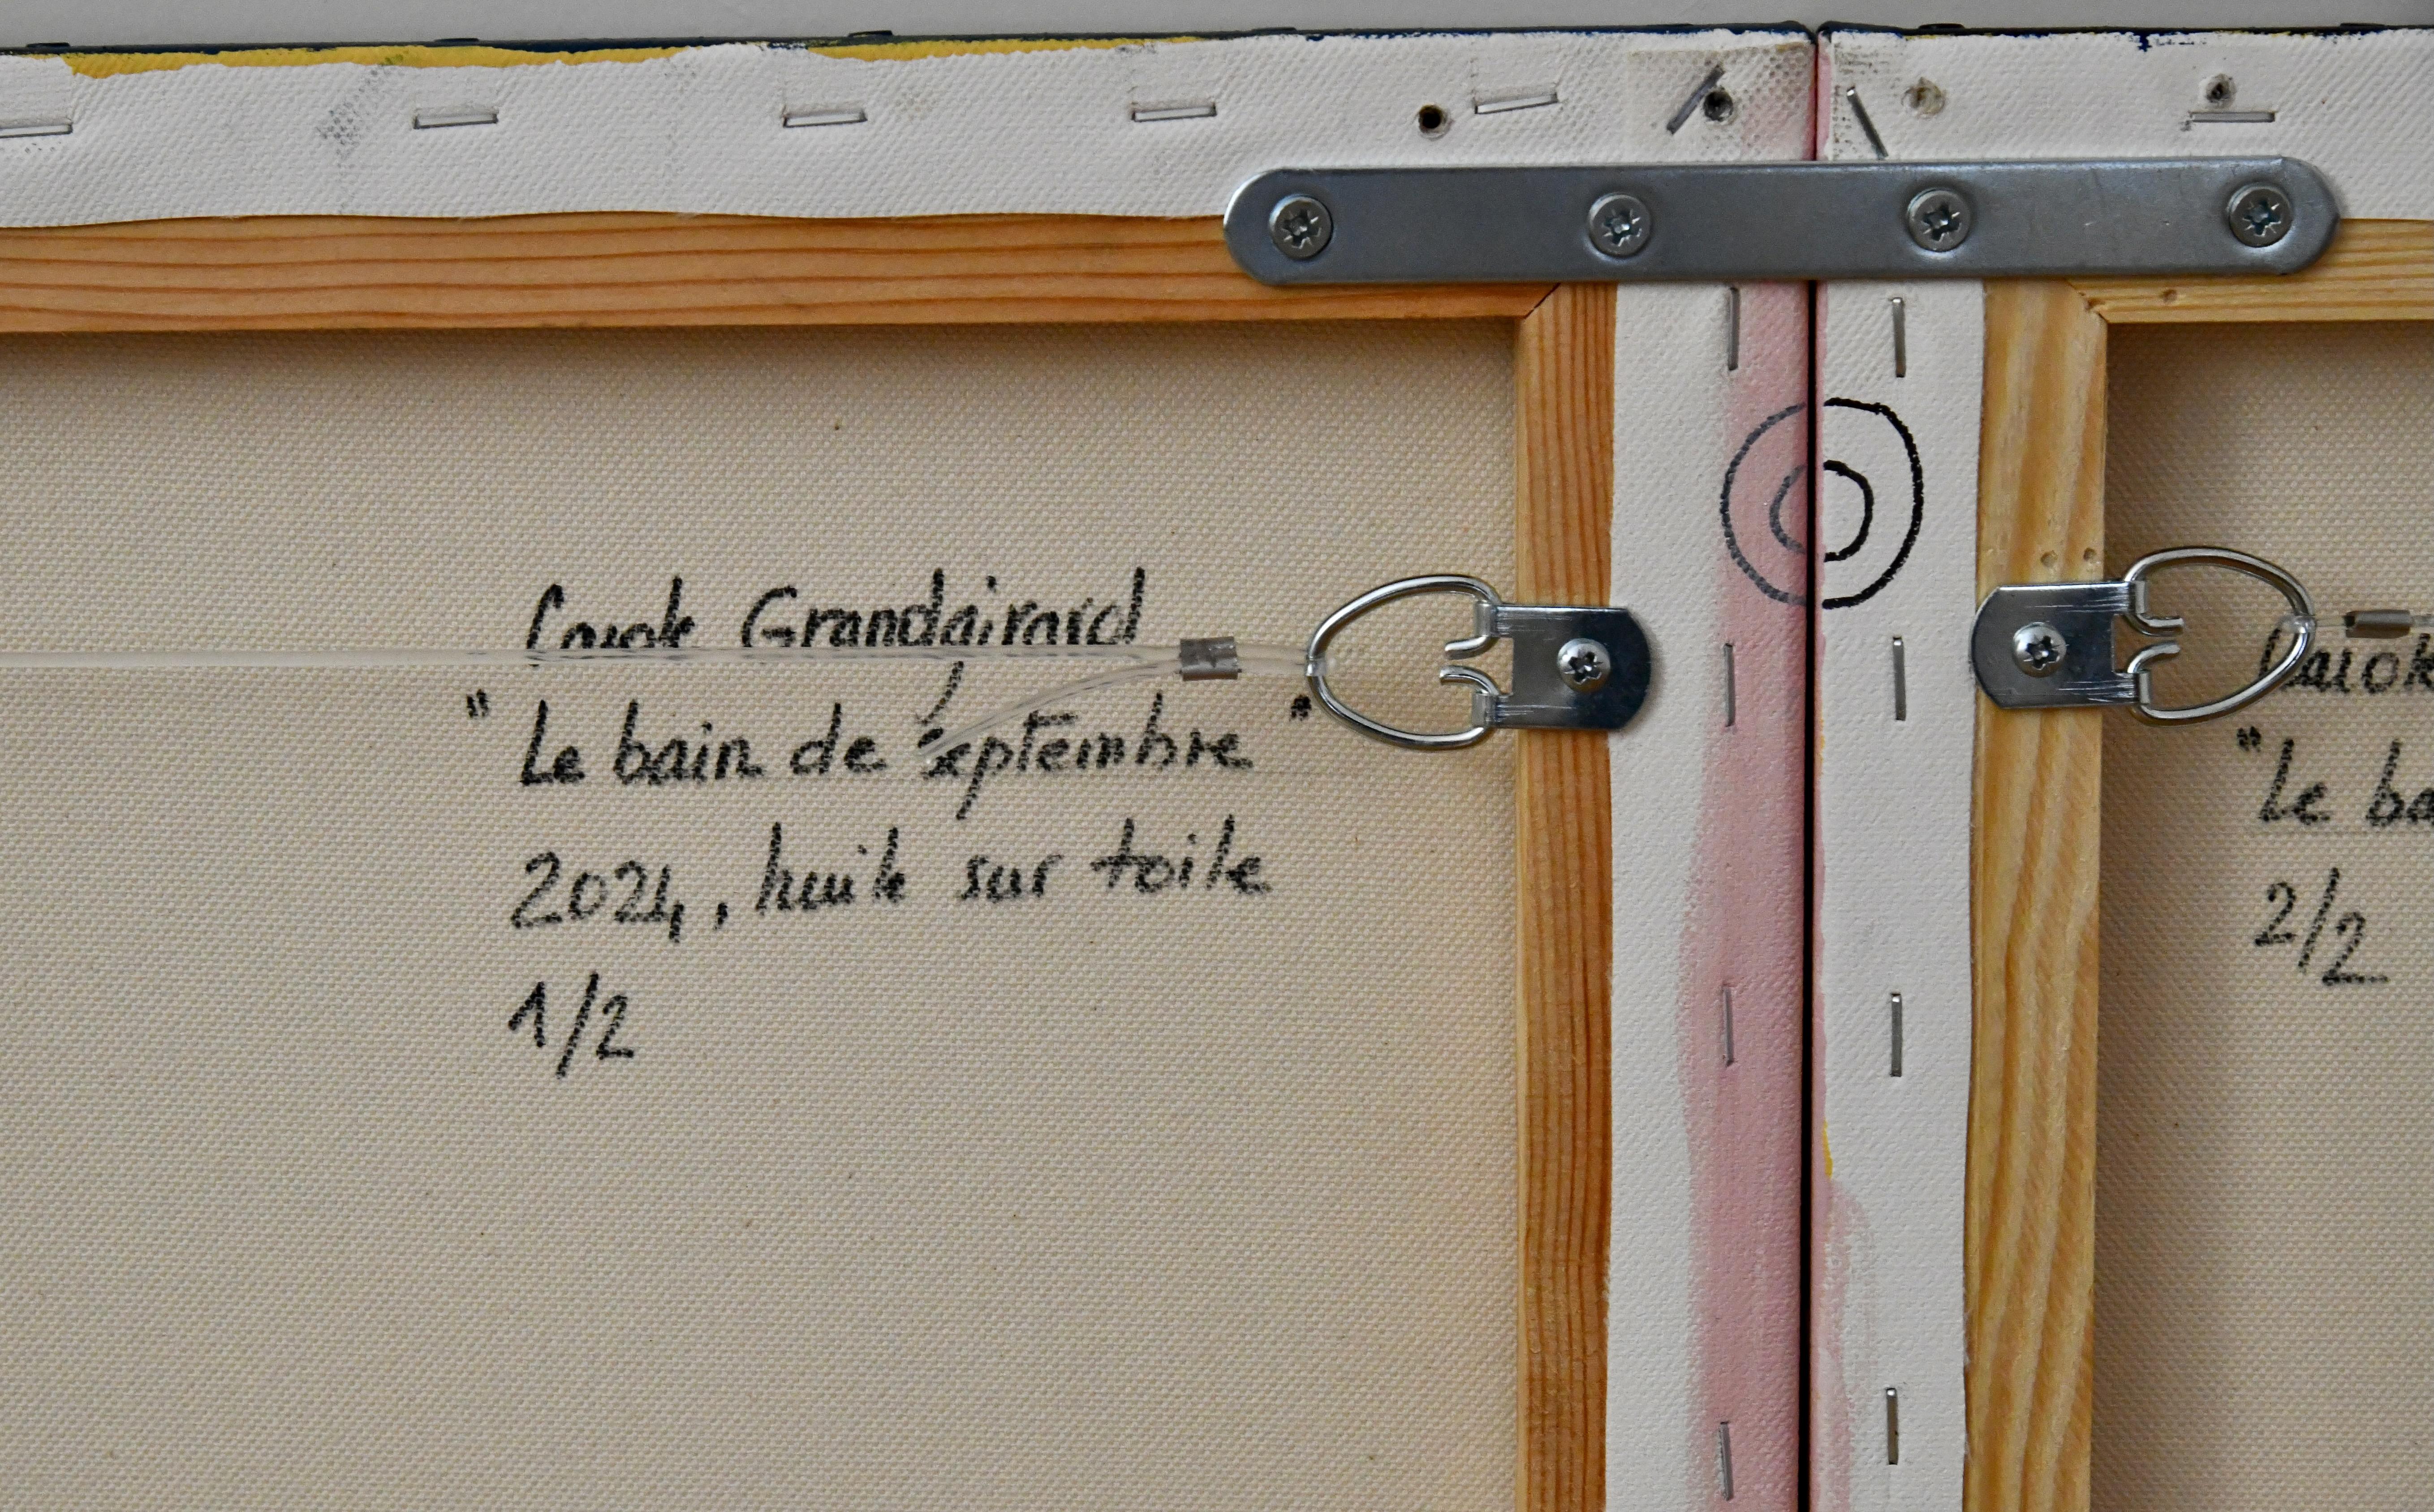 Carole Grandgirard
"Le bain de Septembre"
2024, huile sur toile
1/2
Carole
"Le ba
2/2